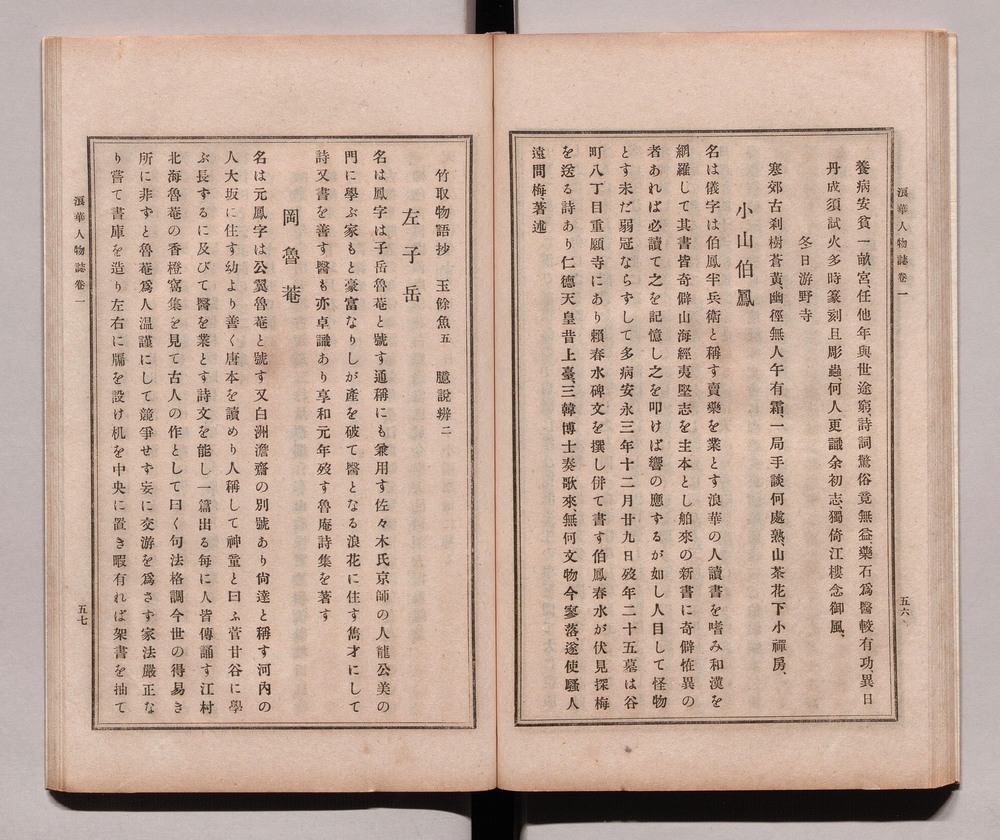 浪華人物誌卷一
五六
養病安貧一畝宮、任他年與世途窮、詩詞驚俗竟無益、藥石爲醫較有功、異日
丹成須試火、多時篆刻且彫蟲、何人更識余初志、獨倚江樓念御風、
冬日游野寺
寒郊古刹樹蒼黃、幽徑無人午有霜、一局手談何處熟、山茶花下小禪房、
小山伯鳳
名は儀字は伯鳳半兵衛と稱す賣藥を業とす浪華の人讀書を嗜み和漢を
網羅して其書皆奇僻山海經夷堅志を主本とし舶來の新書に奇僻恠異の
者あれば必讀て之を記憶し之を叩けば響の應ずるが如し人目して怪物
とす未だ弱冠ならずして多病安永三年十二月廿九日歿年二十五墓は谷
町八丁目重願寺にあり賴春水碑文を撰し併て書す伯鳳春水が伏見探梅
を送る詩あり仁德天皇昔上臺、三韓博士奏歌來、無何文物今寥落、遂使騷人
遠間梅著述
竹取物語抄 玉餘魚五 臆說辨二
左子岳
名は鳳字は子岳魯菴と號す通稱にも兼用す佐々木氏京師の人龍公美の
門に學ぶ家もと豪富なりしが產を破て醫となる浪花に住す雋才にして
詩又書を善す醫も亦卓識あり享和元年歿す魯庵詩集を著す
岡魯菴
名は元鳳字は公翼魯菴と號す又白洲澹齋の別號あり尙達と稱す河內の
人大坂に住す幼より善く唐本を讀めり人稱して神童と曰ふ菅甘谷に學
ぶ長ずるに及びて醫を業とす詩文を能し一篇出る每に人皆傳誦す江村
北海魯菴の香橙窩集を見て古人の作として曰く句法格調今世の得易き
所に非ずと魯菴爲人溫謹にして競爭せず妄に交游を爲さず家法嚴正な
り嘗て書庫を造り左右に牖を設け机を中央に置き暇有れば架書を抽て
浪華人物誌卷一
五七